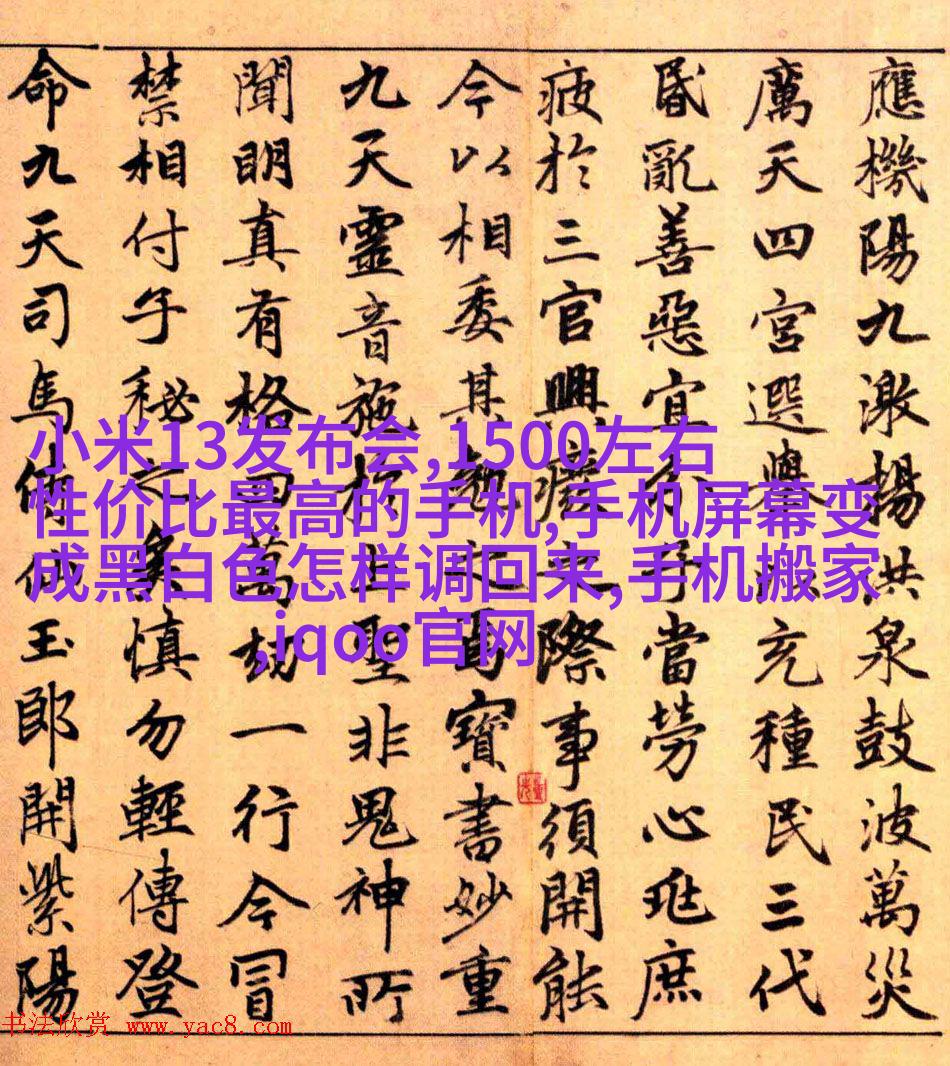 應機陽九激揚洪泉鼓波萬災
厲天四宮選舉以充種民三代
昏亂善惡宜分子當勞心兆庶
疲於三官興廢之際事須開能
今以相委其勉之焉寶書妙重
九天靈音施於上聖非鬼神所
聞明真有格四萬劫一行今冒
禁相付子秘之矣慎勿輕傳登
命九天司馬侍仙玉郎開紫陽
小米13发布会,1500左右
性价比最高的手机,手机屏幕变
成黑白色怎样调回来,手机搬家
,iqoo官网
书法欣赏 www.yac8.com